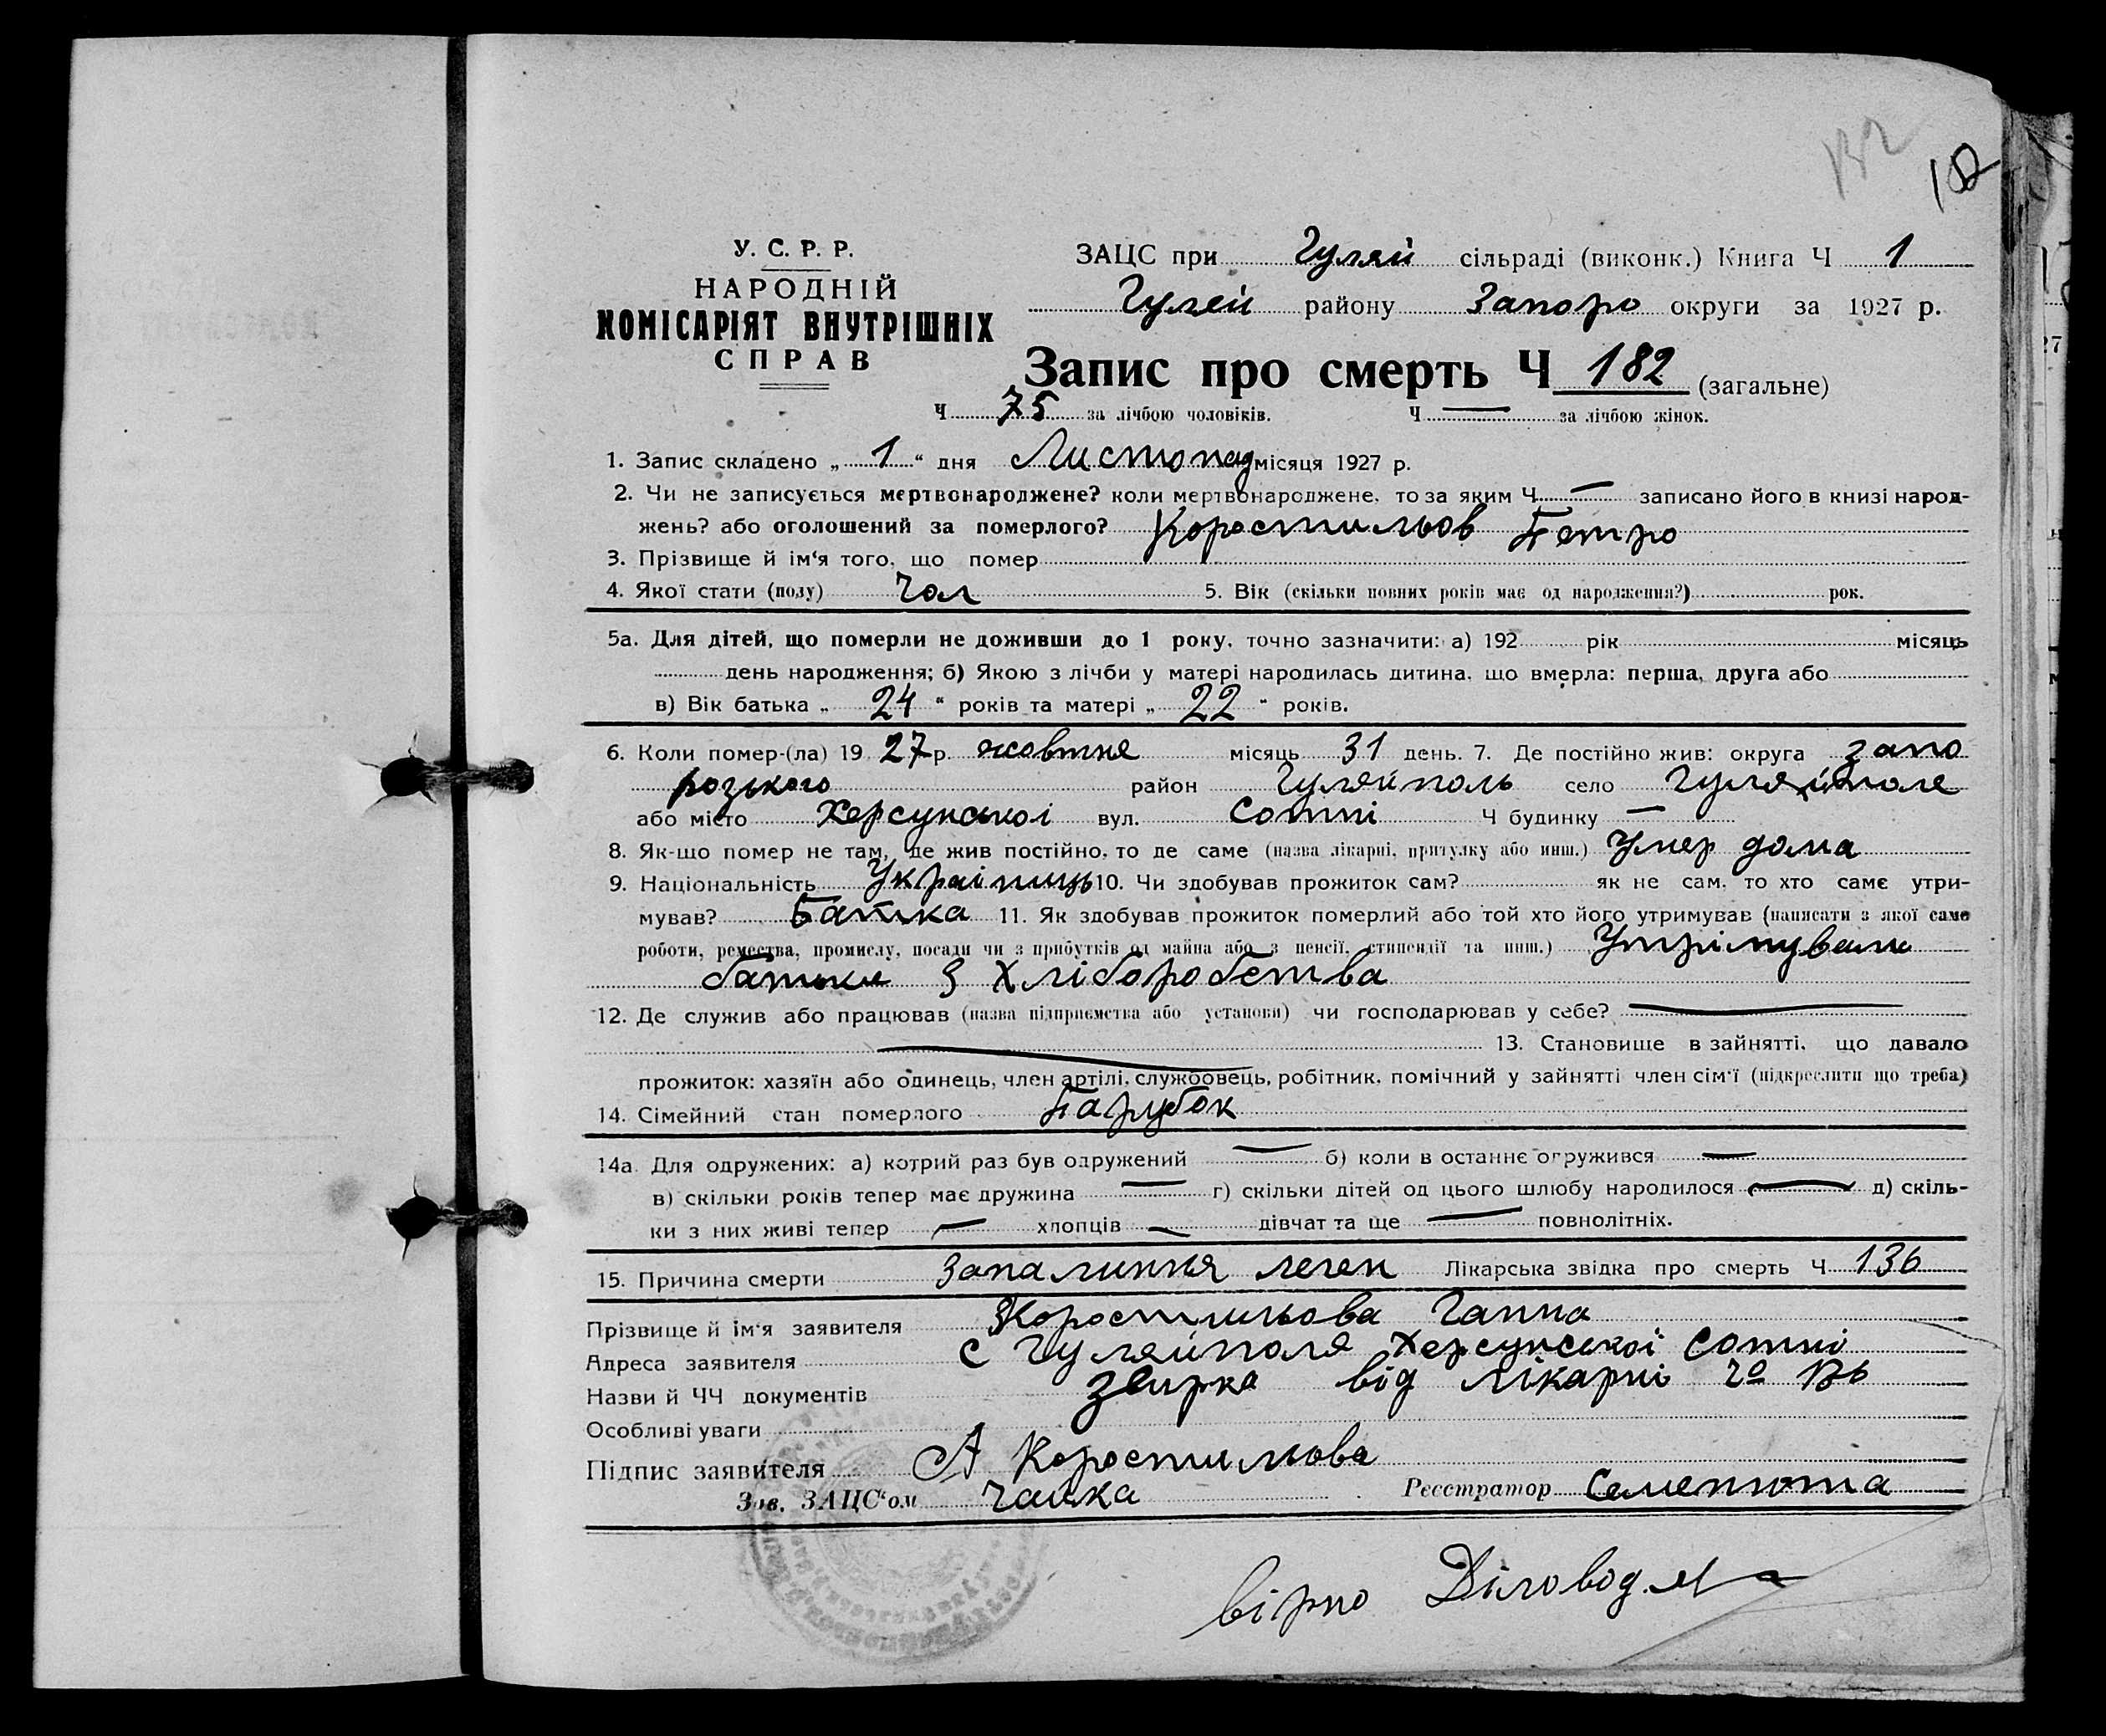 182
У. С. Р. Р.
НАРОДНІЙ
КОМІСАРІЯТ ВНУТРІШНІХ
СПРАВ
ЗАЦС при Гуляй сільраді (виконк.) Книга Ч 1
Гуляй району Запоро округи за 1927 р.
Запис про смерть Ч 182 (загальне)
Ч 75 за лічбою чоловіків. Ч — за лічбою жінок.
1. Запис складено „ 1 “ дня Листопад місяця 1927 р.
2. Чи не записується мертвонароджене? коли мертвонароджене, то за яким Ч — записано його в книзі народ-
жень? або оголошений за померлого? Коростильов Петро
3. Прізвище й ім‘я того, що помер
4. Якої стати (полу) Чол 5. Вік (скільки повних років має од народження?) рок.
5а. Для дітей, що померли не доживши до 1 року, точно зазначити: а) 192 рік місяць
день народження; б) Якою з лічби у матері народилась дитина, що вмерла: перша, друга або
в) Вік батька „ 24 “ років та матері „ 22 “ років.
6. Коли помер-(ла) 19 27 р. жовтня місяць 31 день. 7. Де постійно жив: округа запо
розького район Гуляйполь село Гуляйполе
або місто Херсунської вул. Сотні Ч будинку —
8. Як-що помер не там, де жив постійно, то де саме (назва лікарні, притулку або инш.) Умер дома
9. Національність Україниць 10. Чи здобував прожиток сам? як не сам, то хто саме утри-
мував? Батька 11. Як здобував прожиток померлий або той хто його утримував (написати з якої саме
роботи, ремества, промислу, посади чи з прибутків од майна або з пенсії, стипендії та инш.) Утрімували
батьки З хліборобства
12. Де служив або працював (назва підприємства або установи) чи господарював у себе? —
— 13. Становище в зайнятті, що давало
прожиток: хазяїн або одинець, член артілі, службовець, робітник, помічний у зайнятті член сім‘ї (підкреслити що треба)
14. Сімейний стан померлого Парубок
14а. Для одружених: а) котрий раз був одружений — б) коли в останнє огружився —
в) скільки років тепер має дружина — г) скільки дітей од цього шлюбу народилося — д) скіль-
ки з них живі тепер — хлопців — дівчат та ще — повнолітніх.
15. Причина смерти Запалиння леген Лікарська звідка про смерть Ч 136
Прізвище й ім‘я заявителя Коростильова Ганна
Адреса заявителя с Гуляйполя Херсунської Сотні
Назви й ЧЧ документів від лікарні
Особливі уваги
Підпис заявителя А Коростильова
Зав. ЗАЦС‘ом Чайка Реєстратор Семенюта
вірно Діловод